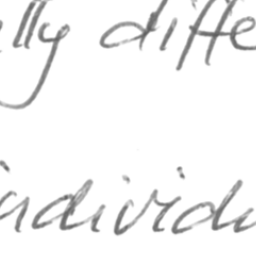 lly diffe
individu